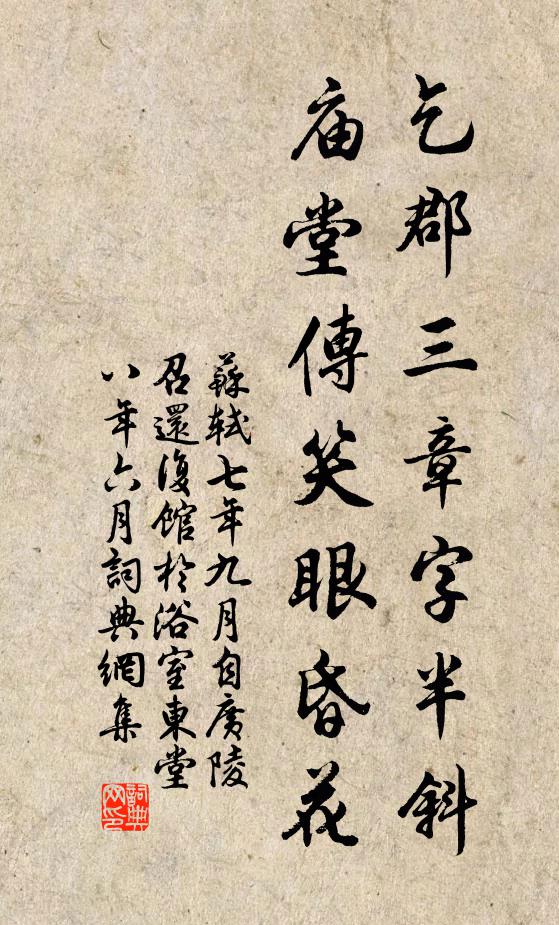 乞郡三章字半斜
庙堂傳笑眼昏花
蘇軾七年九月自廣陵
召還復館於浴室東堂
八年六月詞典網集
詞典网印